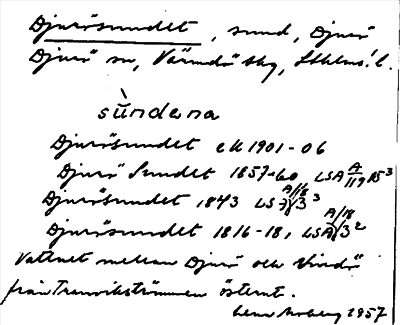 Djurösundet, sund, Djurö
Djurö sn, Värmdö skg, Sthlms l.
sùndena
Djurösundet ek 1901-06
Djurö Sundet 1857-60 LSA A 119 15³
Djurösundet 1843 LSA A/18 3³
Djurösundet 1816-18, LSA A/18 3²
Vattnet mellan Djurö och Vindö
från Tranvikströmmen österut.
1957